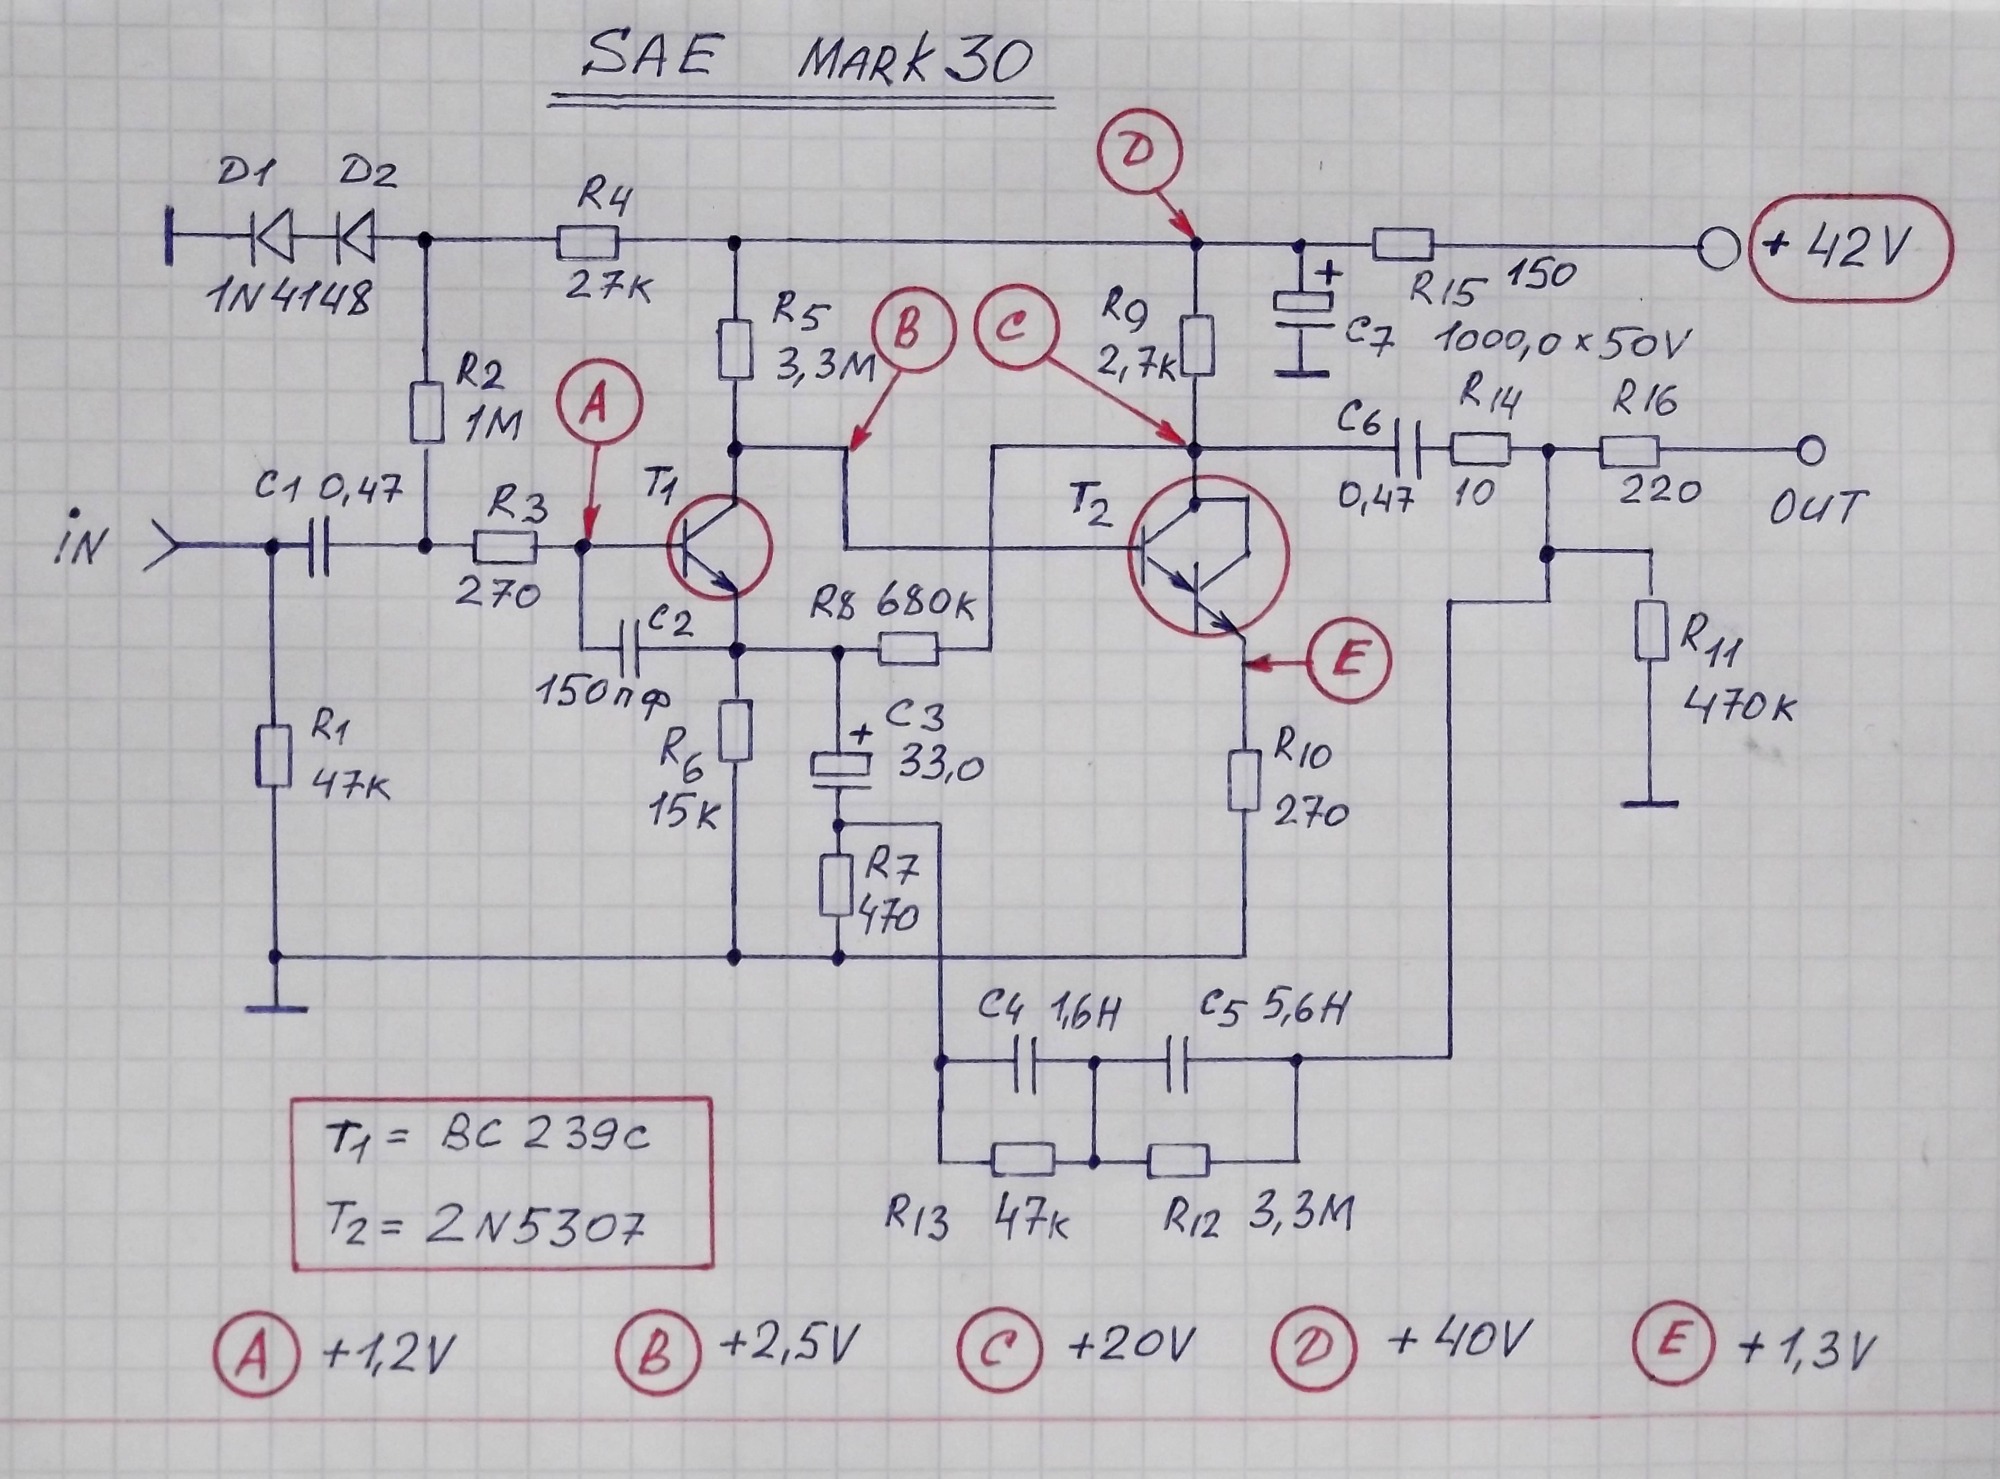 SAE MARK 30
D
D1 D2
R4
+ 42V
1N4148
27K
R15 150
R5
3,3M
B
C
R9
2,7K
+
C7 1000,0 x 50V
R2
1M
A
C6
R14
R16
C1 0,47
R3
T1
T2
0,47
10
220
OUT
iN
270
C2
R8 680K
150пф
E
R11
470K
R1
47K
R6
15K
+
C3
33,0
R10
270
R7
470
C4 1,6H
C5 5,6H
T1 = BC 239C
T2 = 2N5307
R13 47K
R12 3,3M
A +1,2V
B +2,5V
C +20V
D +40V
E +1,3V